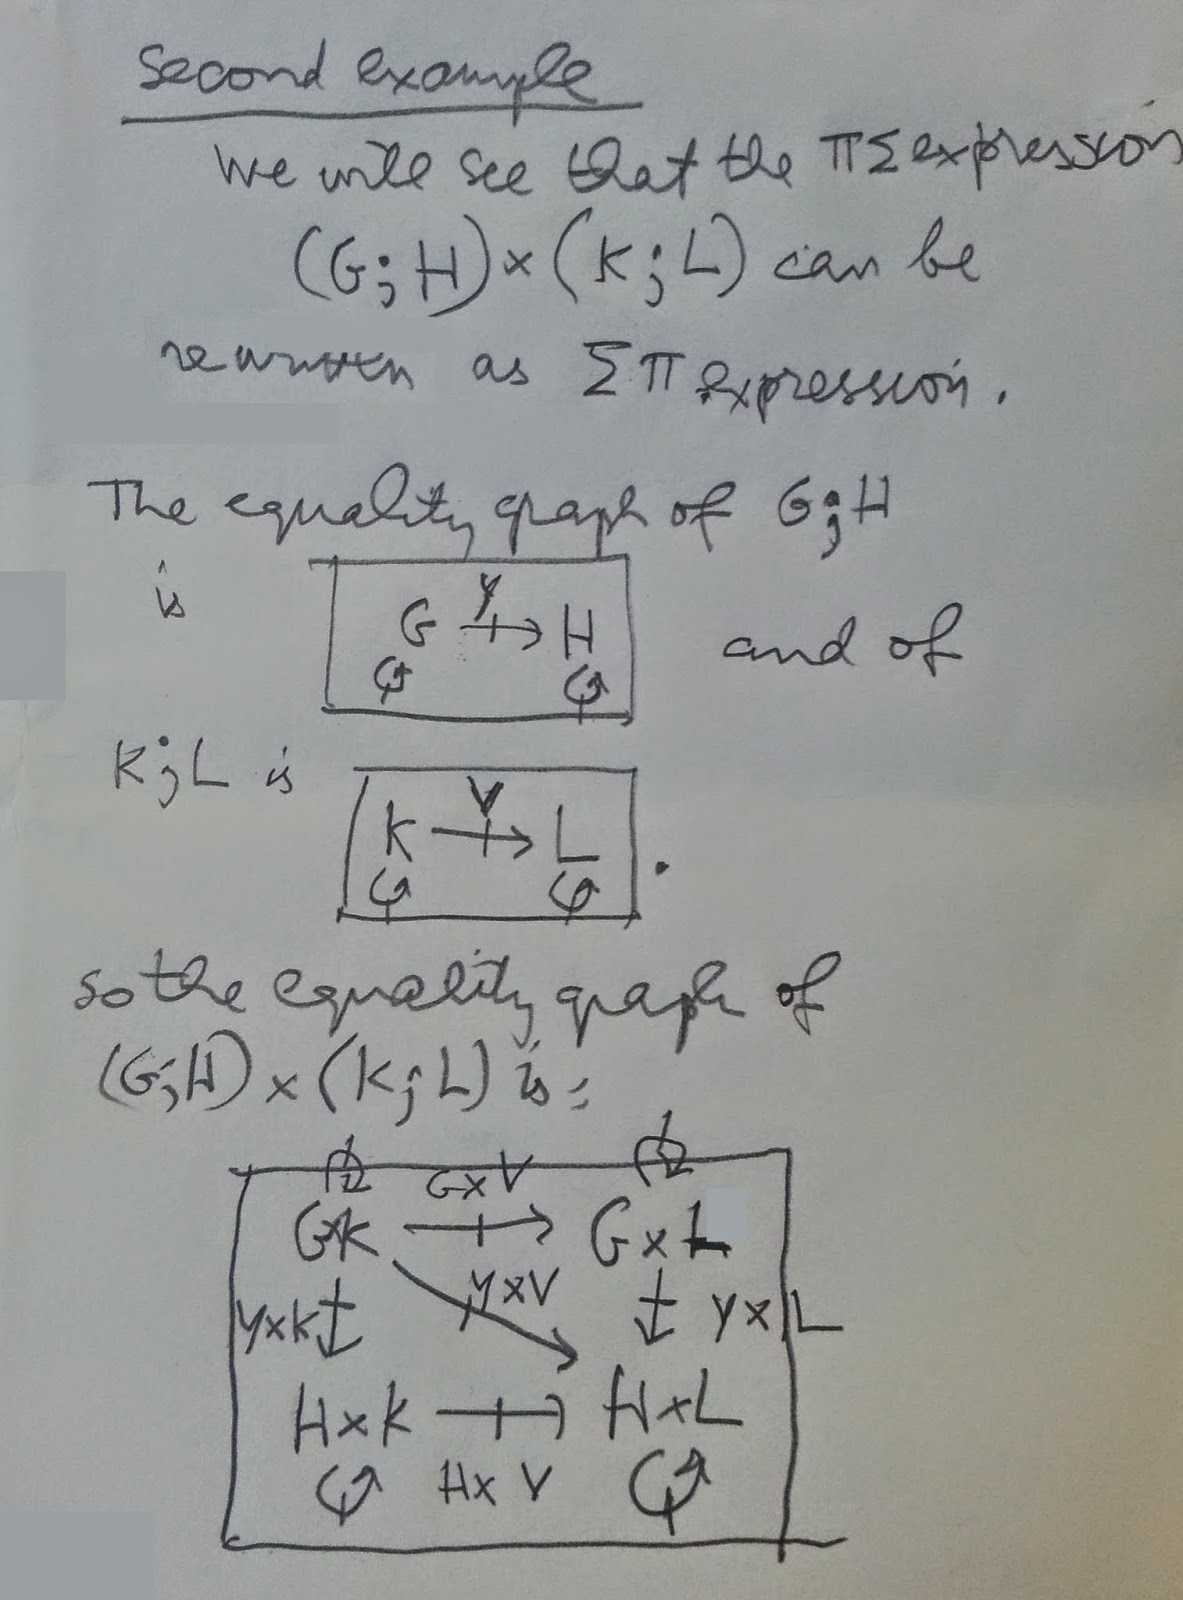 Second example
We will see that the ΠΣ expression
(G;H) × (K;L) can be
rewritten as ΣΠ expression.
The equality graph of G;H
is
Y
G H
and of
K;L is
V
K L .
so the equality graph of
(G;H) × (K;L) is:
G×V
G×K G×L
Y×K Y×V Y×L
H×K H×L
H×V